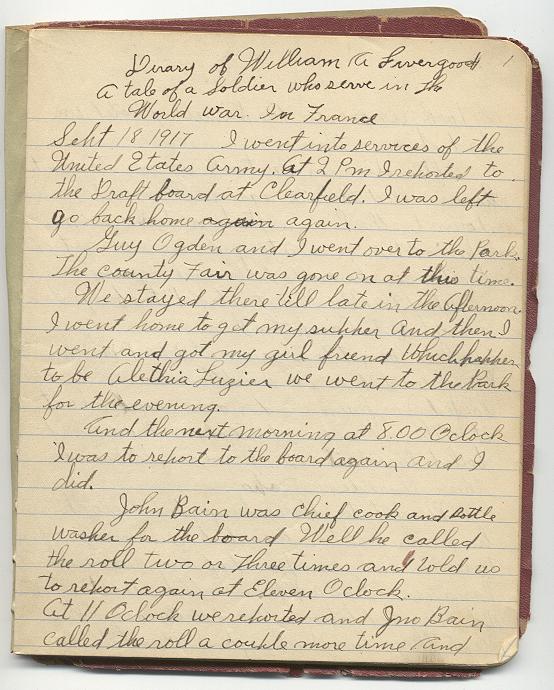 1
Diary of William A Livergood
A tale of a Soldier who serve in the
World war. In France
Sept 18 1917 I went into services of the
United States Army. At 2 Pm I reported to
the Draft board at Clearfield. I was left
go back home again again.
Guy Ogden and I went over to the Park.
The county Fair was gone on at this time.
We stayed there till late in the Afternoon.
I went home to get my supper And then I
went and got my girl friend Which happen
to be Alethia Luzier we went to the Park
for the evening.
And the next morning at 8.00 Oclock
I was to report to the board again and I
did.
John Bain was chief cook and Bottle
washer for the board Well he called
the roll two or three times and told us
to report again at Eleven Oclock.
At 11 Oclock we reported and Jno Bain
called the roll a couple more time and